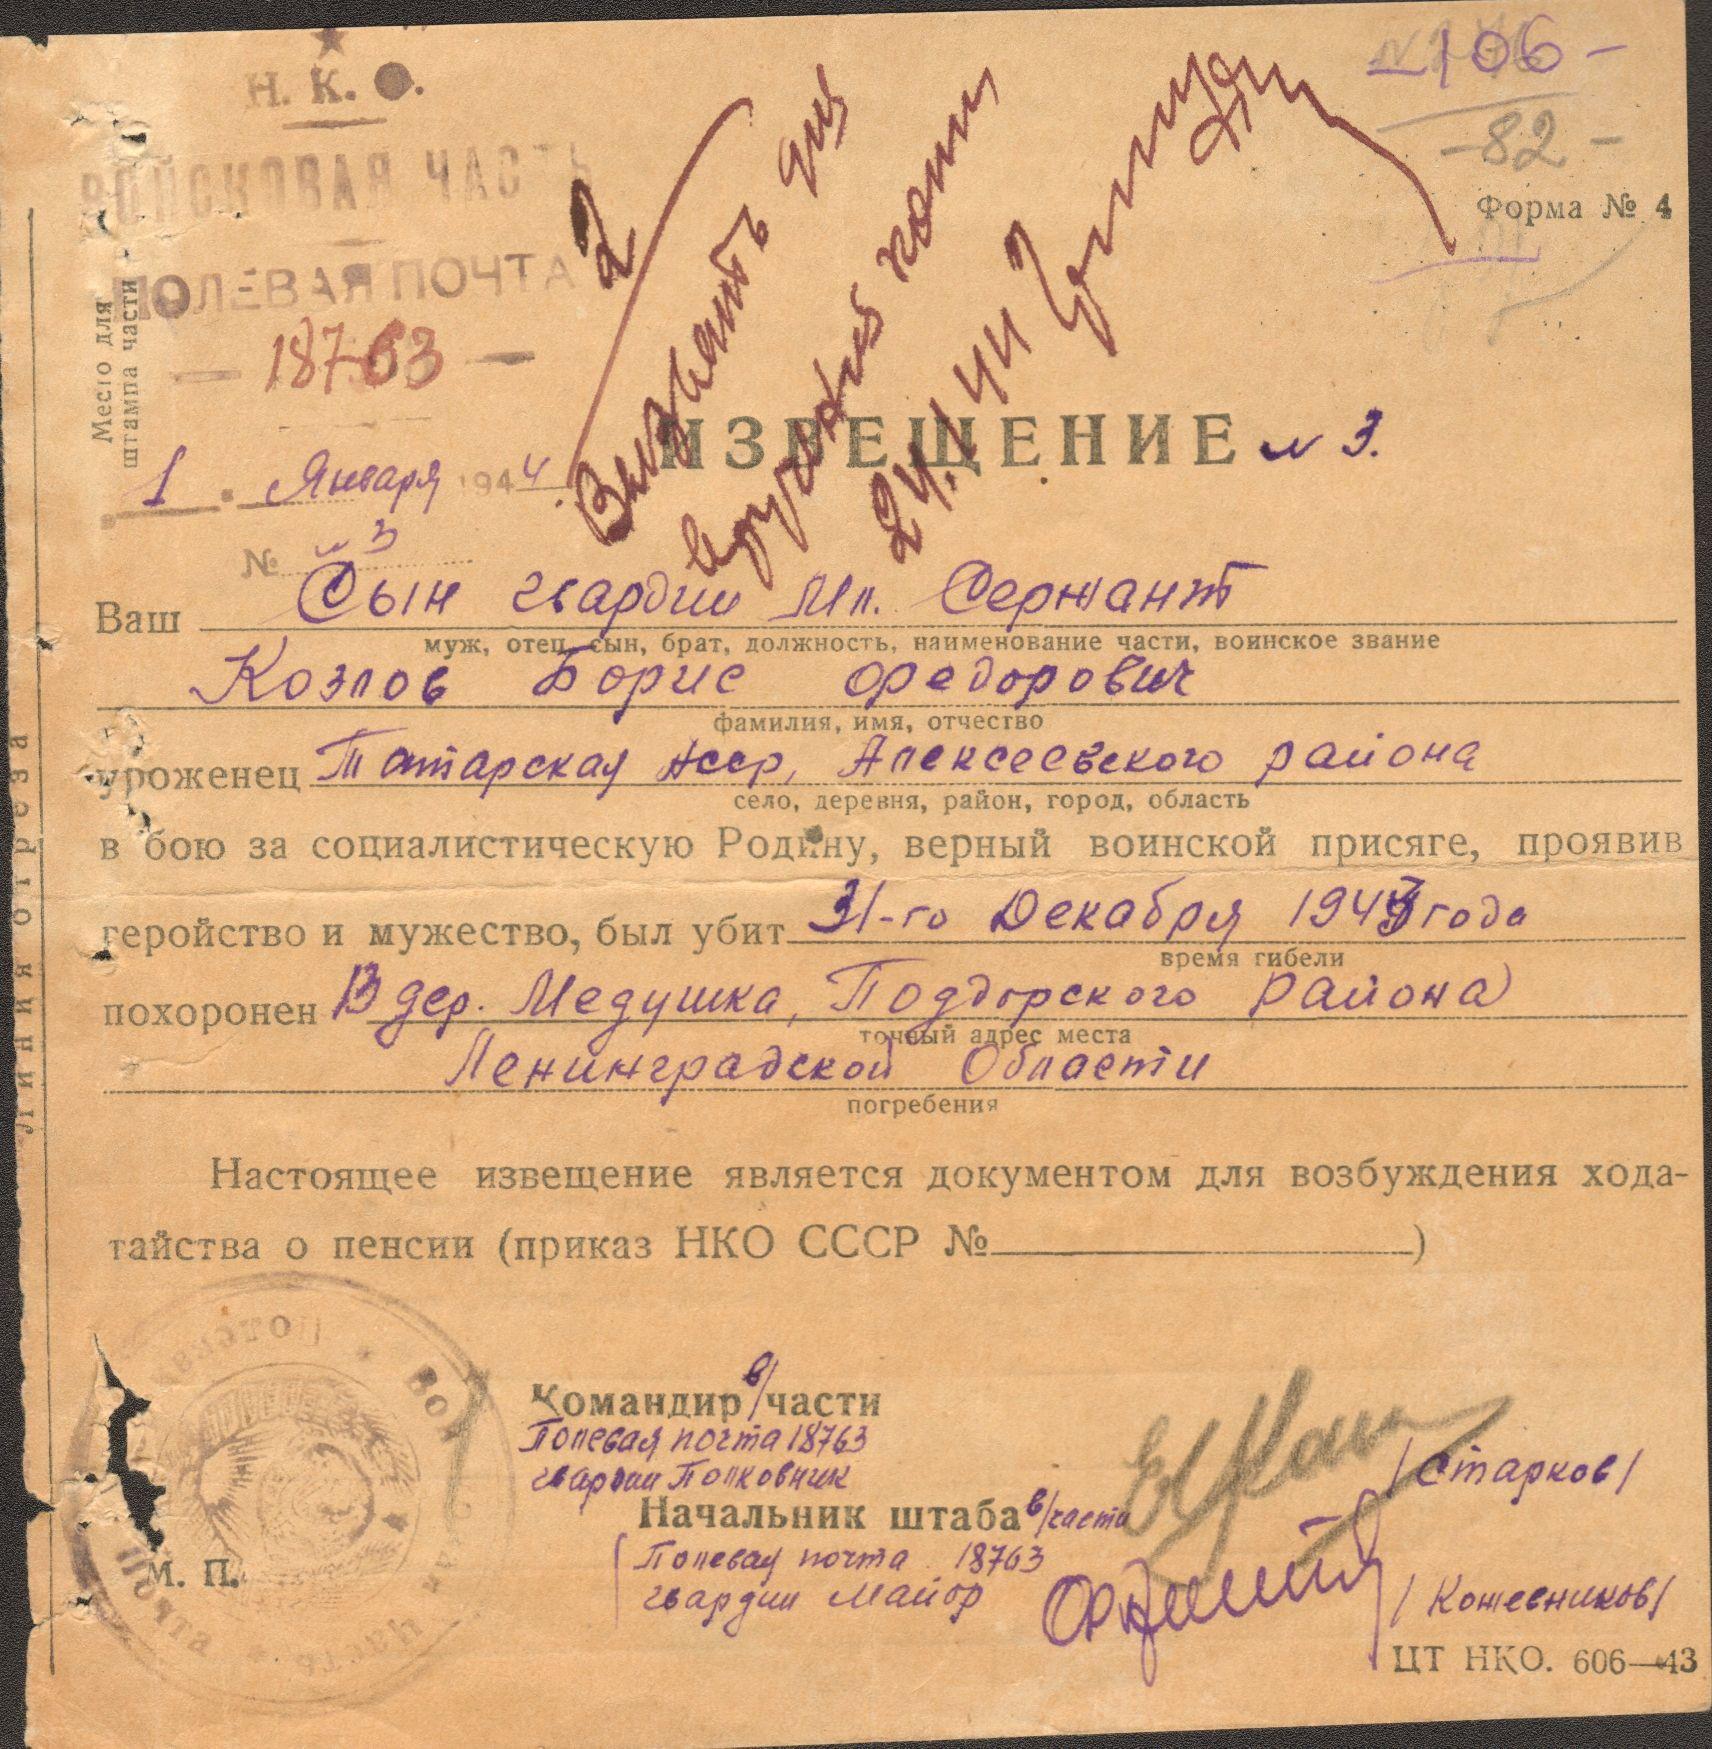 Н. К. О.
ВОЙСКОВАЯ ЧАСТЬ
ПОЛЕВАЯ ПОЧТА
— 18763 —
Место для
штампа части
1 Января 1944
№ 3
-106-
-82-
Форма № 4
2
24.1 44
ИЗВЕЩЕНИЕ N 3.
Ваш Сын гвардии Мл. Сержант
муж, отец, сын, брат, должность, наименование части, воинское звание
Козлов Борис Федорович
фамилия, имя, отчество
уроженец Татарская Асср, Алексеевского района
село, деревня, район, город, область
в бою за социалистическую Родину, верный воинской присяге, проявив
геройство и мужество, был убит 31-го Декабря 1943 года
время гибели
похоронен В дер. Медушка, Поддорского района
точный адрес места
Ленинградской Области
погребения
Настоящее извещение является документом для возбуждения хода-
тайства о пенсии (приказ НКО СССР № )
Командир в/части
Полевая почта 18763
гвардии Полковник
/Старков/
Начальник штаба в/части
Полевая почта 18763
гвардии Майор
/Кожевников/
М. П.
ЦТ НКО. 606—43
Линия отреза